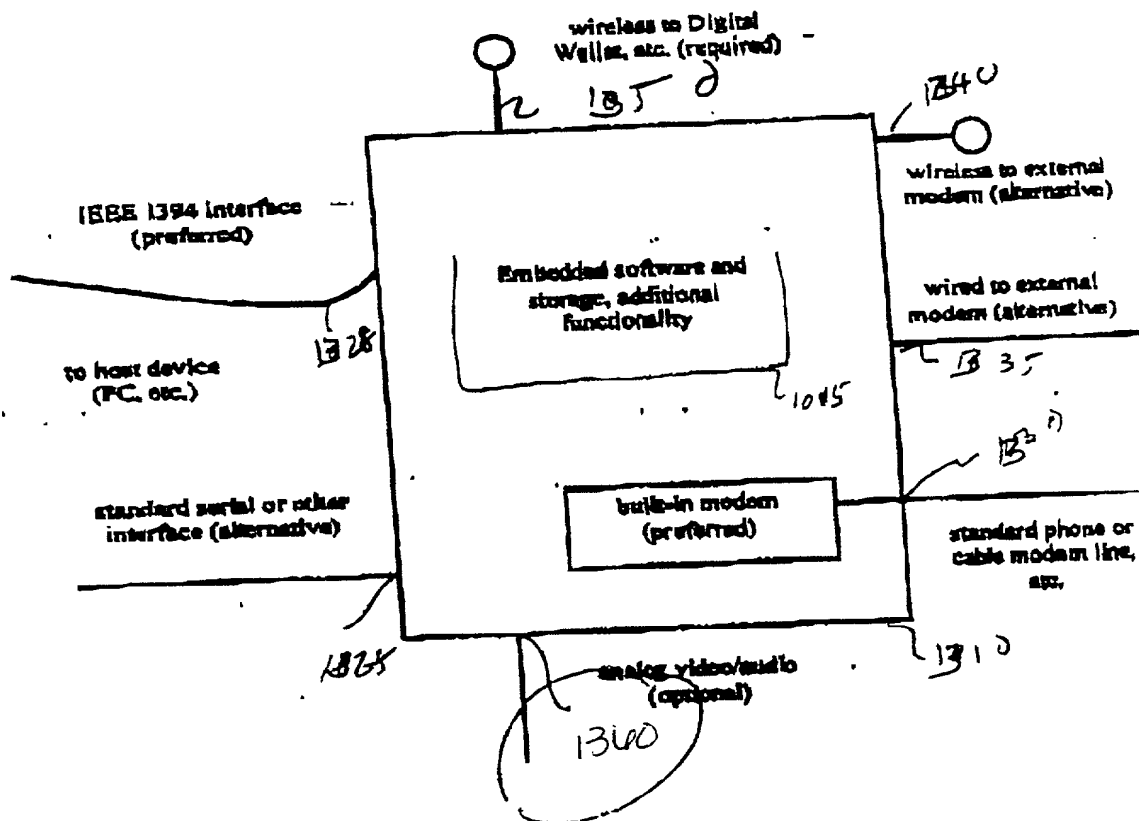 wireless to Digital
Wallet, etc. (required)
1340
wireless to external
modem (alternative)
IEEE 1394 interface
(preferred)
Embedded software and
storage, additional
functionality
wired to external
modem (alternative)
1328
to host device
(PC, etc.)
1335
1045
standard serial or other
interface (alternative)
built-in modem
(preferred)
standard phone or
cable modem line,
etc.
1310
analog video/audio
(optional)
1360